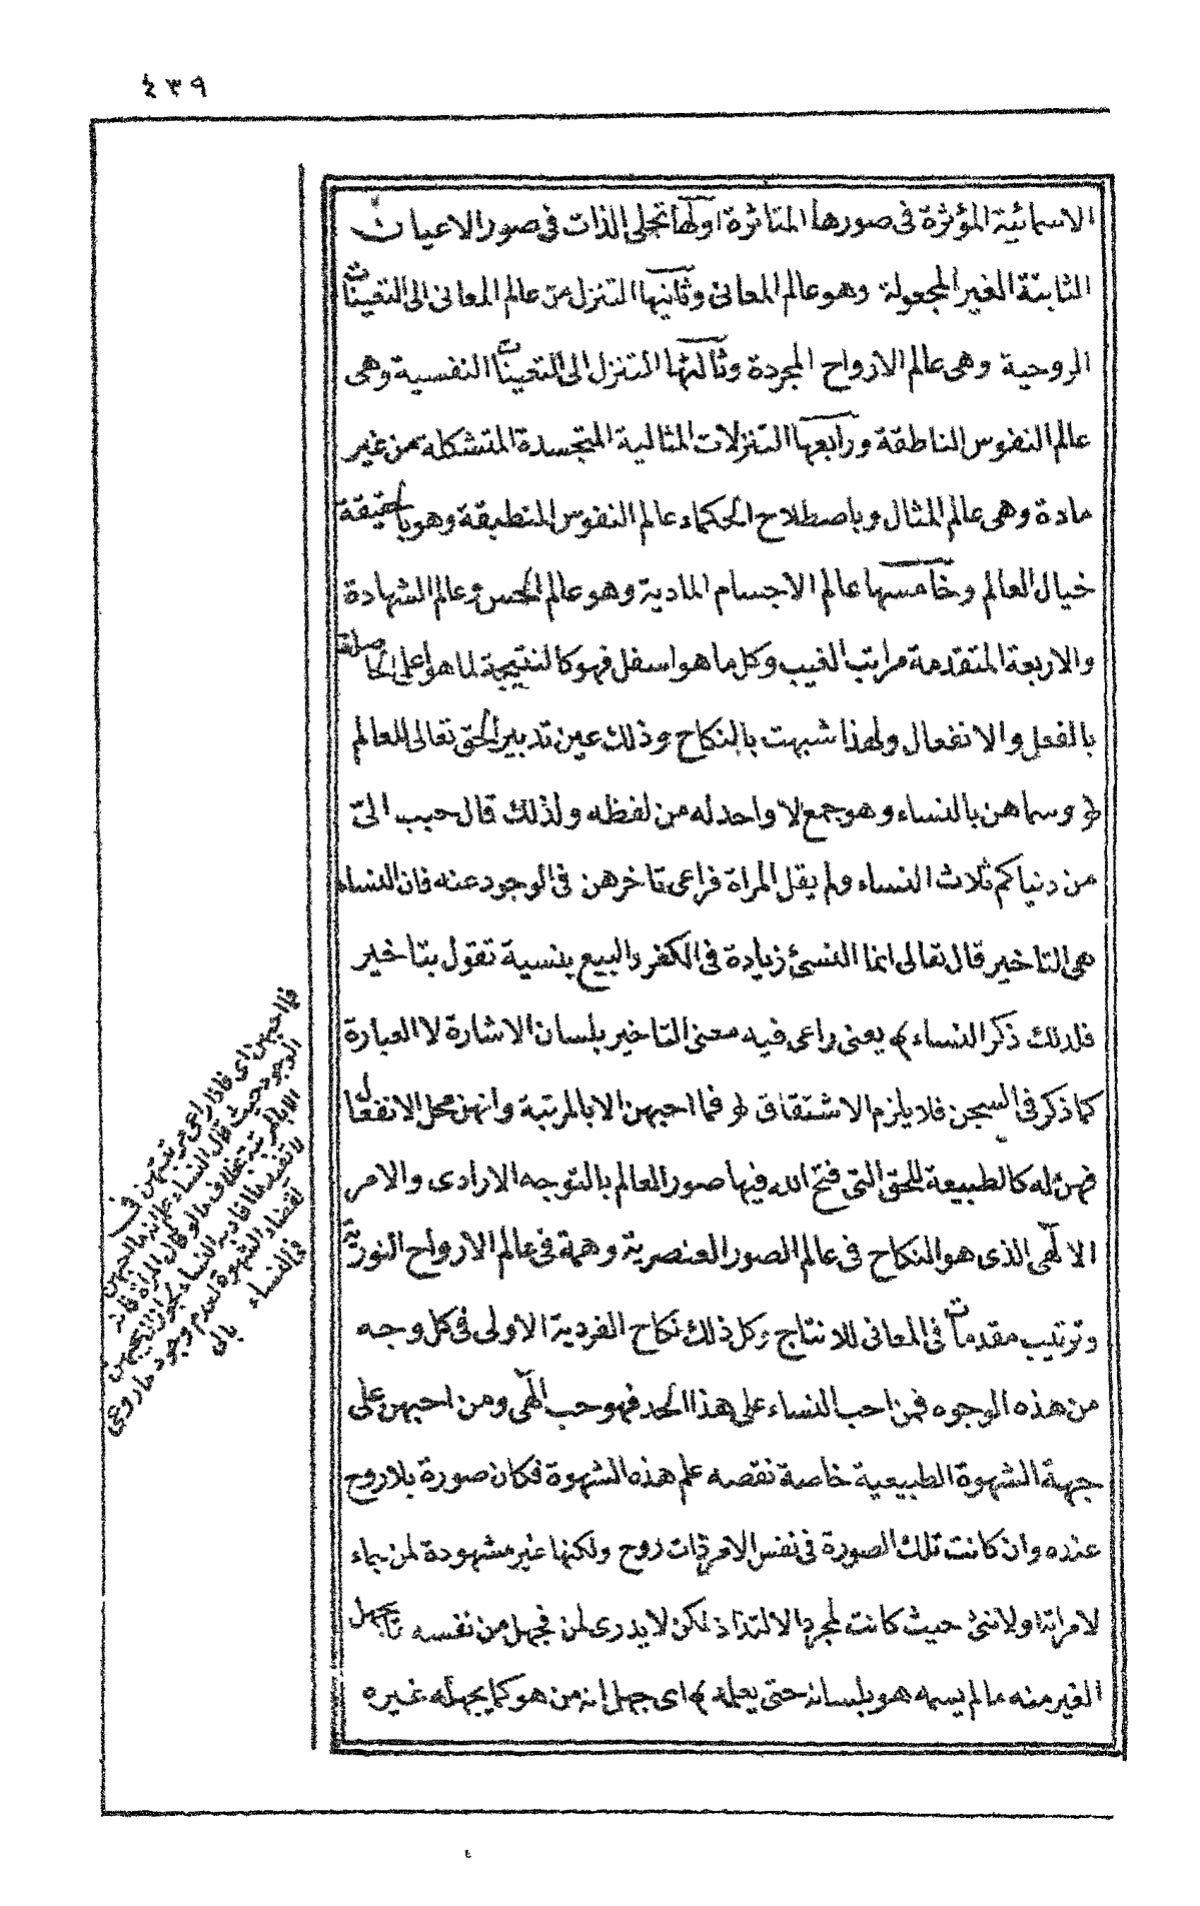 ٤٣٩
الاسمائية المؤثرة فى صورها المتاثرة اولها تجلى الذات فى صور الاعيان
الثابتة الغير المجعولة وهو عالم المعانى وثانيها التنزل من عالم المعانى الى التعينات
الروحية وهى عالم الارواح المجردة وثالثها التنزل الى التعينات النفسية وهى
عالم النفوس الناطقة ورابعها التنزلات المثالية المتجسدة المتشكلة من غير
مادة وهى عالم المثال وباصطلاح الحكماء عالم النفوس المنطبقة وهو بالحقيقة
خيال العالم وخامسها عالم الاجسام المادية وهو عالم الحس وعالم الشهادة
والاربعة المتقدمة مراتب الغيب وكل ما هو اسفل فهو كالنتيجة لما هو اعلى الحاصلة
بالفعل والانفعال ولهذا شبهت بالنكاح وذلك عين تدبير الحق تعالى للعالم
﴿ وسماهن بالنساء وهو جمع لا واحد له من لفظه ولذلك قال حبب الىّ
من دنياكم ثلاث النساء ولم يقل المراة فراعى تاخرهن فى الوجود عنه فان النساء
هى التاخير قال تعالى انما النسئ زيادة فى الكفر والبيع بنسية تقول بتاخير
فلذلك ذكر النساء ﴾ يعنى راعى فيه معنى التاخير بلسان الاشارة لا العبارة
كما ذكر فى السجن فلا يلزم الاشتقاق ﴿ فما احبهن الا بالمرتبة وانهن محل الانفعال
فهن له كالطبيعة للحق التى فتح الله فيها صور العالم بالتوجه الارادى والامر
الالهى الذى هو النكاح فى عالم الصور العنصرية وهمة فى عالم الارواح النورية
وترتيب مقدمات فى المعانى للانتاج وكل ذلك نكاح الفردية الاولى فى كل وجه
من هذه الوجوه فمن احب النساء على هذا الحد فهو حب الهى ومن احبهن على
جهة الشهوة الطبيعية خاصة نقصه علم هذه الشهوة فكان صورة بلا روح
عنده وان كانت تلك الصورة فى نفس الامر ذات روح ولكنها غير مشهودة لمن جاء
لامراته او لانثى حيث كانت لمجرد الالتذاذ لكن لا يدرى لمن فجهل من نفسه ما يجهل
الغير منه ما لم يسمه هو بلسانه حتى يعلمه ﴾ اى جهل انه من هو كما يجهله غيره
فما احبهن اى فاذا راعى مرتبتهن فى
الوجود حيث قال النساء علم انه ما احبهن
الا بالمرتبة بخلاف ما لو قال المراة فانه